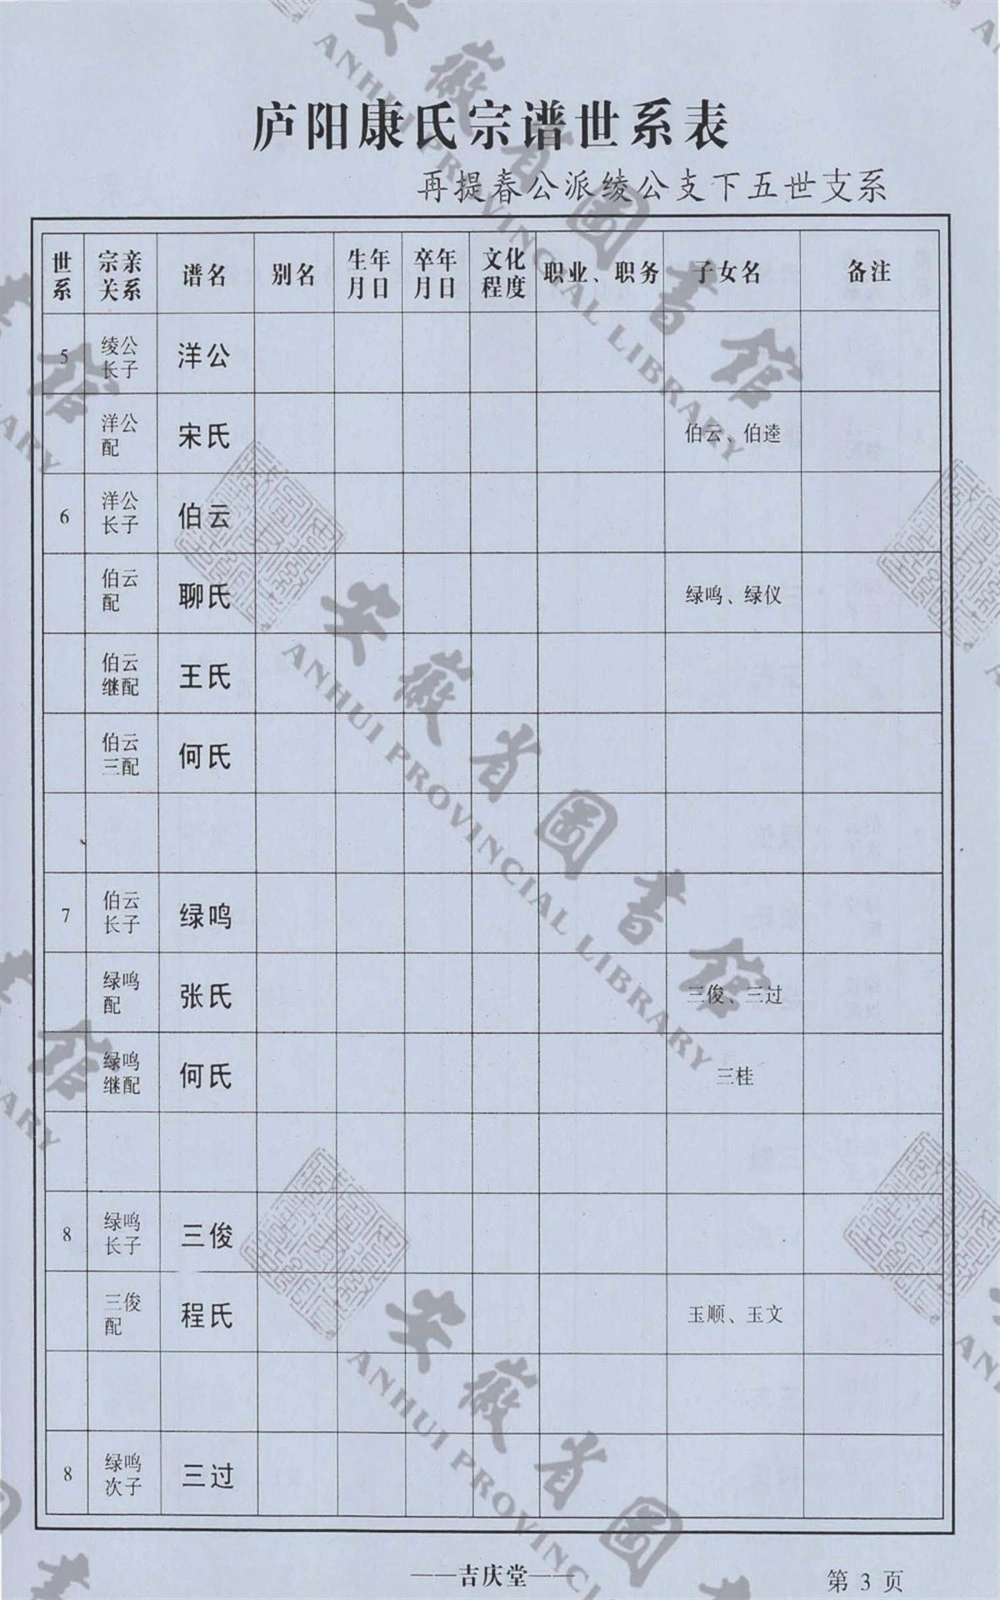 庐阳康氏宗谱世系表
再提春公派绫公支下五世支系
世系 宗亲关系 谱名 别名 生年月日 卒年月日 文化程度 职业、职务 子女名 备注
5 绫公长子 洋公
洋公配 宋氏 伯云、伯逵
6 洋公长子 伯云
伯云配 聊氏 绿鸣、绿仪
伯云继配 王氏
伯云三配 何氏
7 伯云长子 绿鸣
绿鸣配 张氏 三俊、三过
绿鸣继配 何氏 三桂
8 绿鸣长子 三俊
三俊配 程氏 玉顺、玉文
8 绿鸣次子 三过
——吉庆堂——
第 3 页
安徽省图书馆
ANHUI PROVINCIAL LIBRARY